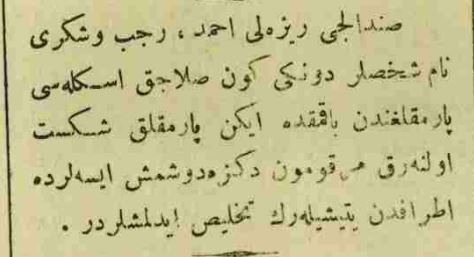 صندالجی ریزه‌لی احمد ، رجب وشکری
نام شخصلر دونکی کون صلاجق اسکله‌سی
پارمقلغندن باقمقده ایکن پارمقلق شکست
اولنه‌رق مرقومون دکزه‌دوشمش ایسه‌لرده
اطرافدن یتیشیله‌رك تخلیص ایدلمشلردر .